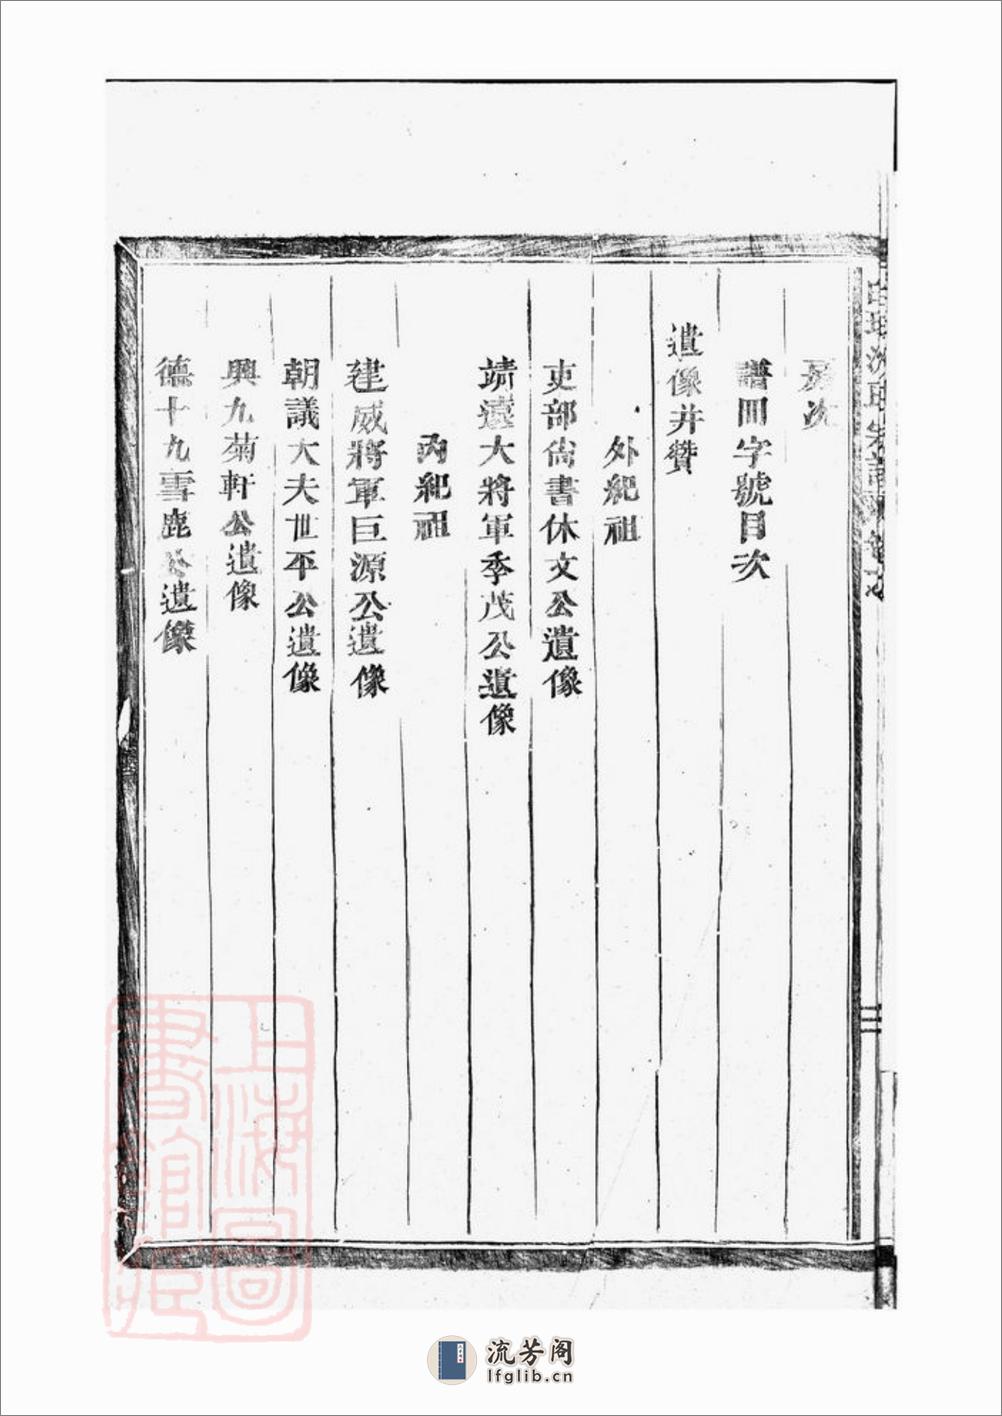 房次
譜冊字號目次
遺像并贊
外紀祖
吏部尚書休文公遺像
靖遠大將軍季茂公遺像
內紀祖
建威將軍巨源公遺像
朝議大夫世平公遺像
興九菊軒公遺像
德十九雪鹿公遺像
上海圖書館藏
流芳阁
lfglib.cn